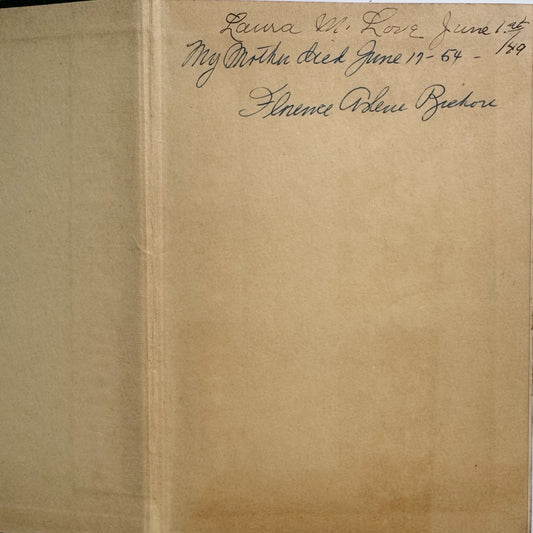 Laura M. Love June 1st/49
My Mother died June 17-54-
Florence Arlene